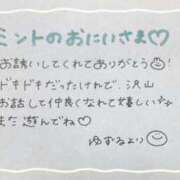 ミントのおにいさま♡
お誘いしてくれてありがとう☺!
ドキドキだったけれど、沢山
お話して仲良くなれて嬉しい☆
また遊んでね♡
ゆずより☺